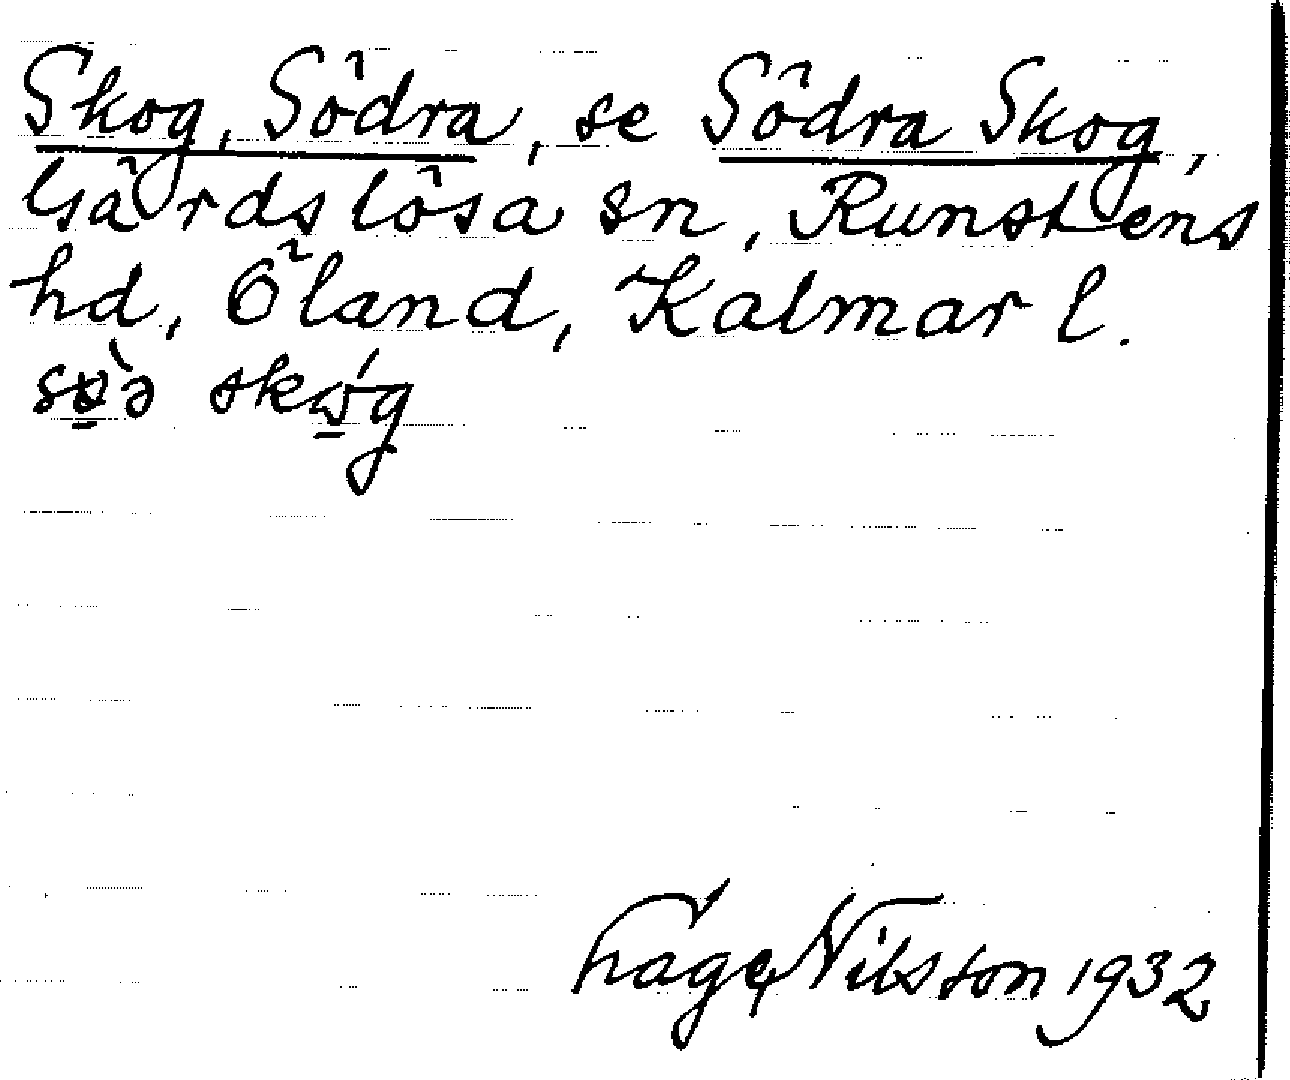 Skog, Södra, se Södra Skog,
Gärdslösa sn, Runstens
hd, Öland, Kalmar l.
skog
Tage Nilsson 1932